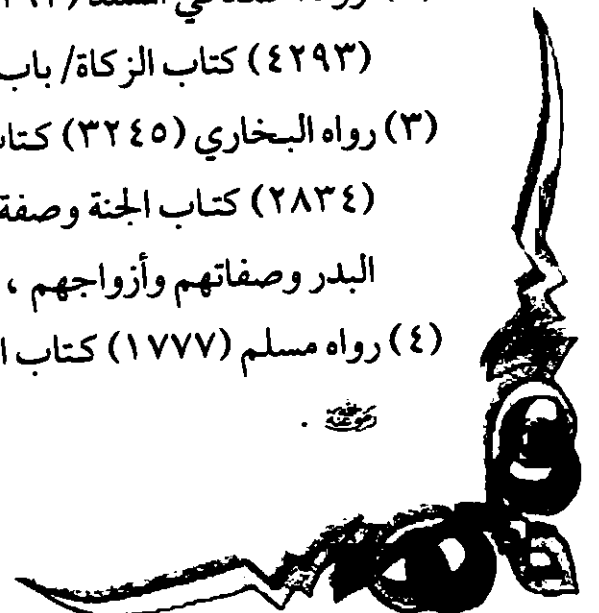 (٤٢٩٣) كتاب الزكاة/ باب
(٣) رواه البخاري (٣٢٤٥)
(٢٨٣٤) كتاب الجنة وصفة
البدر وصفاتهم وأزواجهم ،
(٤) رواه مسلم (١٧٧٧) كتاب
.